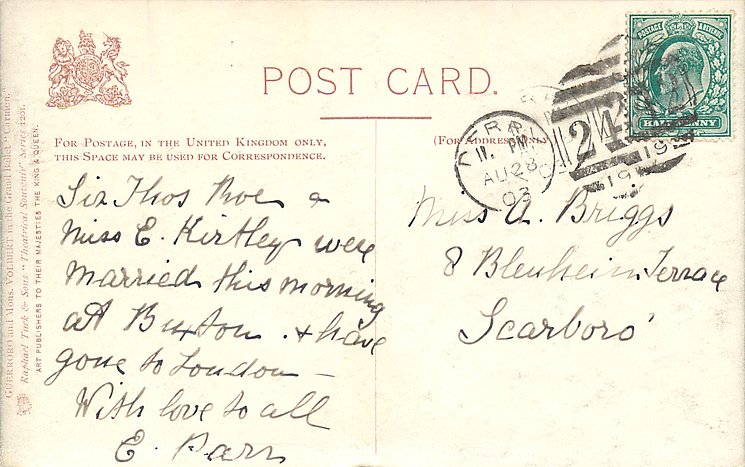 POST CARD.
FOR POSTAGE, IN THE UNITED KINGDOM ONLY,
THIS SPACE MAY BE USED FOR CORRESPONDENCE.
(FOR ADDRESS ONLY)
Sir Thos Roe &
Miss E. Kirtley were
married this morning
at Buxton. & have
gone to London —
With love to all
E. Parr
Miss A. Briggs
8 Blenheim Terrace
Scarboro'
POSTAGE & REVENUE
HALFPENNY
DERBY
AU 28
03
242
GUERRERO and Mons. VOLBERT in the Grand Ballet "Carmen."
Raphael Tuck & Sons' "Theatrical Souvenir" Series 1201.
ART PUBLISHERS TO THEIR MAJESTIES THE KING & QUEEN.